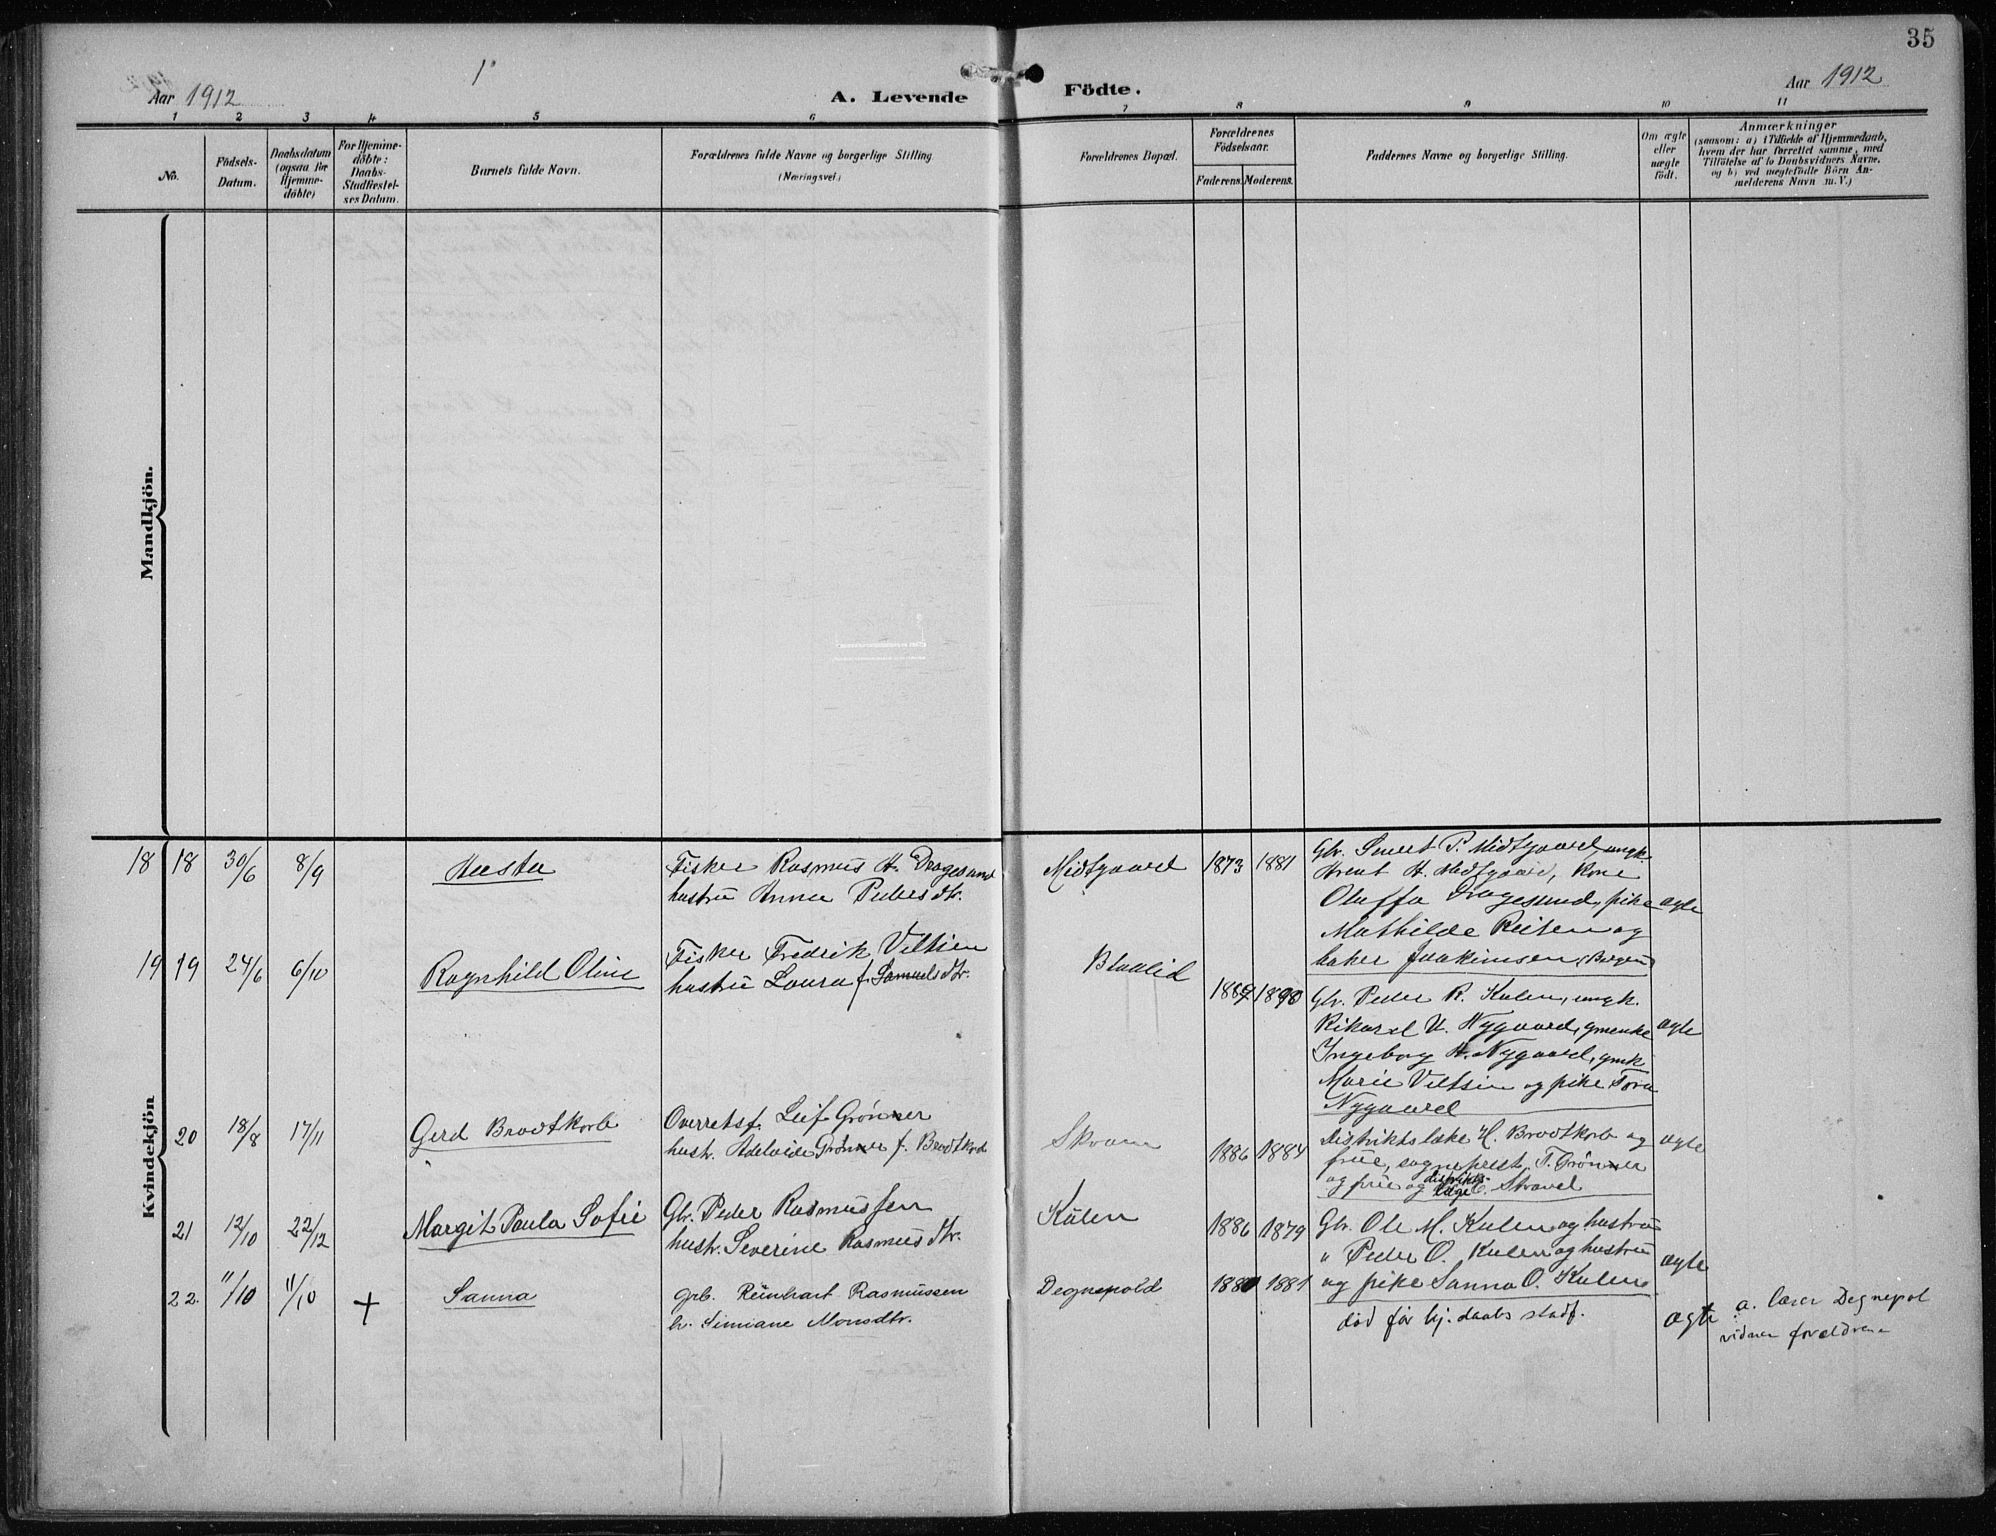 35
Aar 1912
1
A. Levende
Födte.
Aar 1912
1 2 3 4 5 6 7 8 9 10 11
No.
Födsels-
Datum.
Daabsdatum
(ogsaa for
Hjemme-
döbte)
For Hjemme-
döbte:
Daabs-
Stadfæstel-
ses Datum.
Barnets fulde Navn.
Forældrenes fulde Navne og borgerlige Stilling.
(Næringsvei.)
Forældrenes Bopæl.
Forældrenes
Födselsaar.
Faderens. Moderens.
Faddernes Navne og borgerlige Stilling.
Om ægte
eller
uægte
födt.
Anmærkninger
(saasom: a) i Tilfælde af Hjemmedaab,
hvem der har forrettet samme, med
Tilföielse af to Daabsvidners Navne.
og b) ved uægtefödte Börn An-
melderens Navn m. V.)
Mandkjön.
Kvindekjön
18 18 30/6 8/9
Fisker Rasmus H. Dragesund
hustru Anna Pedersdtr.
Midtgaard 1873 1881
Glr. P. Midtgaard, ungk.
H. Midtgaard, Kone
Oluffa Dragesund, pike
Mathilde Reiten og
baker Joakimsen, Bergen
ægte
19 19 24/6 6/10
Ragnhild Oline
Fisker Fredrik Veltsien
hustru Laura f. Samuelsdtr.
Blaalid
1889 1890
Gbr. Peder R. Kulen, ungk.
Rikard U. Nygaard, gmenke
Ingeborg H. Nygaard, gmk
Marie Veltsien og pike Tora
Nygaard
ægte
20 18/8 17/11
Gerd Brodtkorb
Overretssf. Leif Grönner
hustr. Adelaide Grönner f. Brodtkorb
Skram
1886 1884
Distriktslæke H. Brodtkorb og
frue, sogneprest T. Grönner
og frue og distrikts-
læge C. Stravel
ægte
21 12/10 22/12
Margit Paula Sofie
Gbr. Peder Rasmussen
hustr. Severine Rasmusdtr.
Kulen
1886 1879
Gbr. Ole M. Kulen og hustru
" Peder O. Kulen og hustru
og pike Sanna O. Kulen
ægte
22. 11/10 11/10 +
Sanna
grb. Reinhart Rasmussen
h. Simiane Monsdtr.
Degnepold 1880 1881
död för hj. daabs stadf.
ægte
a. lærer Degnepol
vidner forældrene